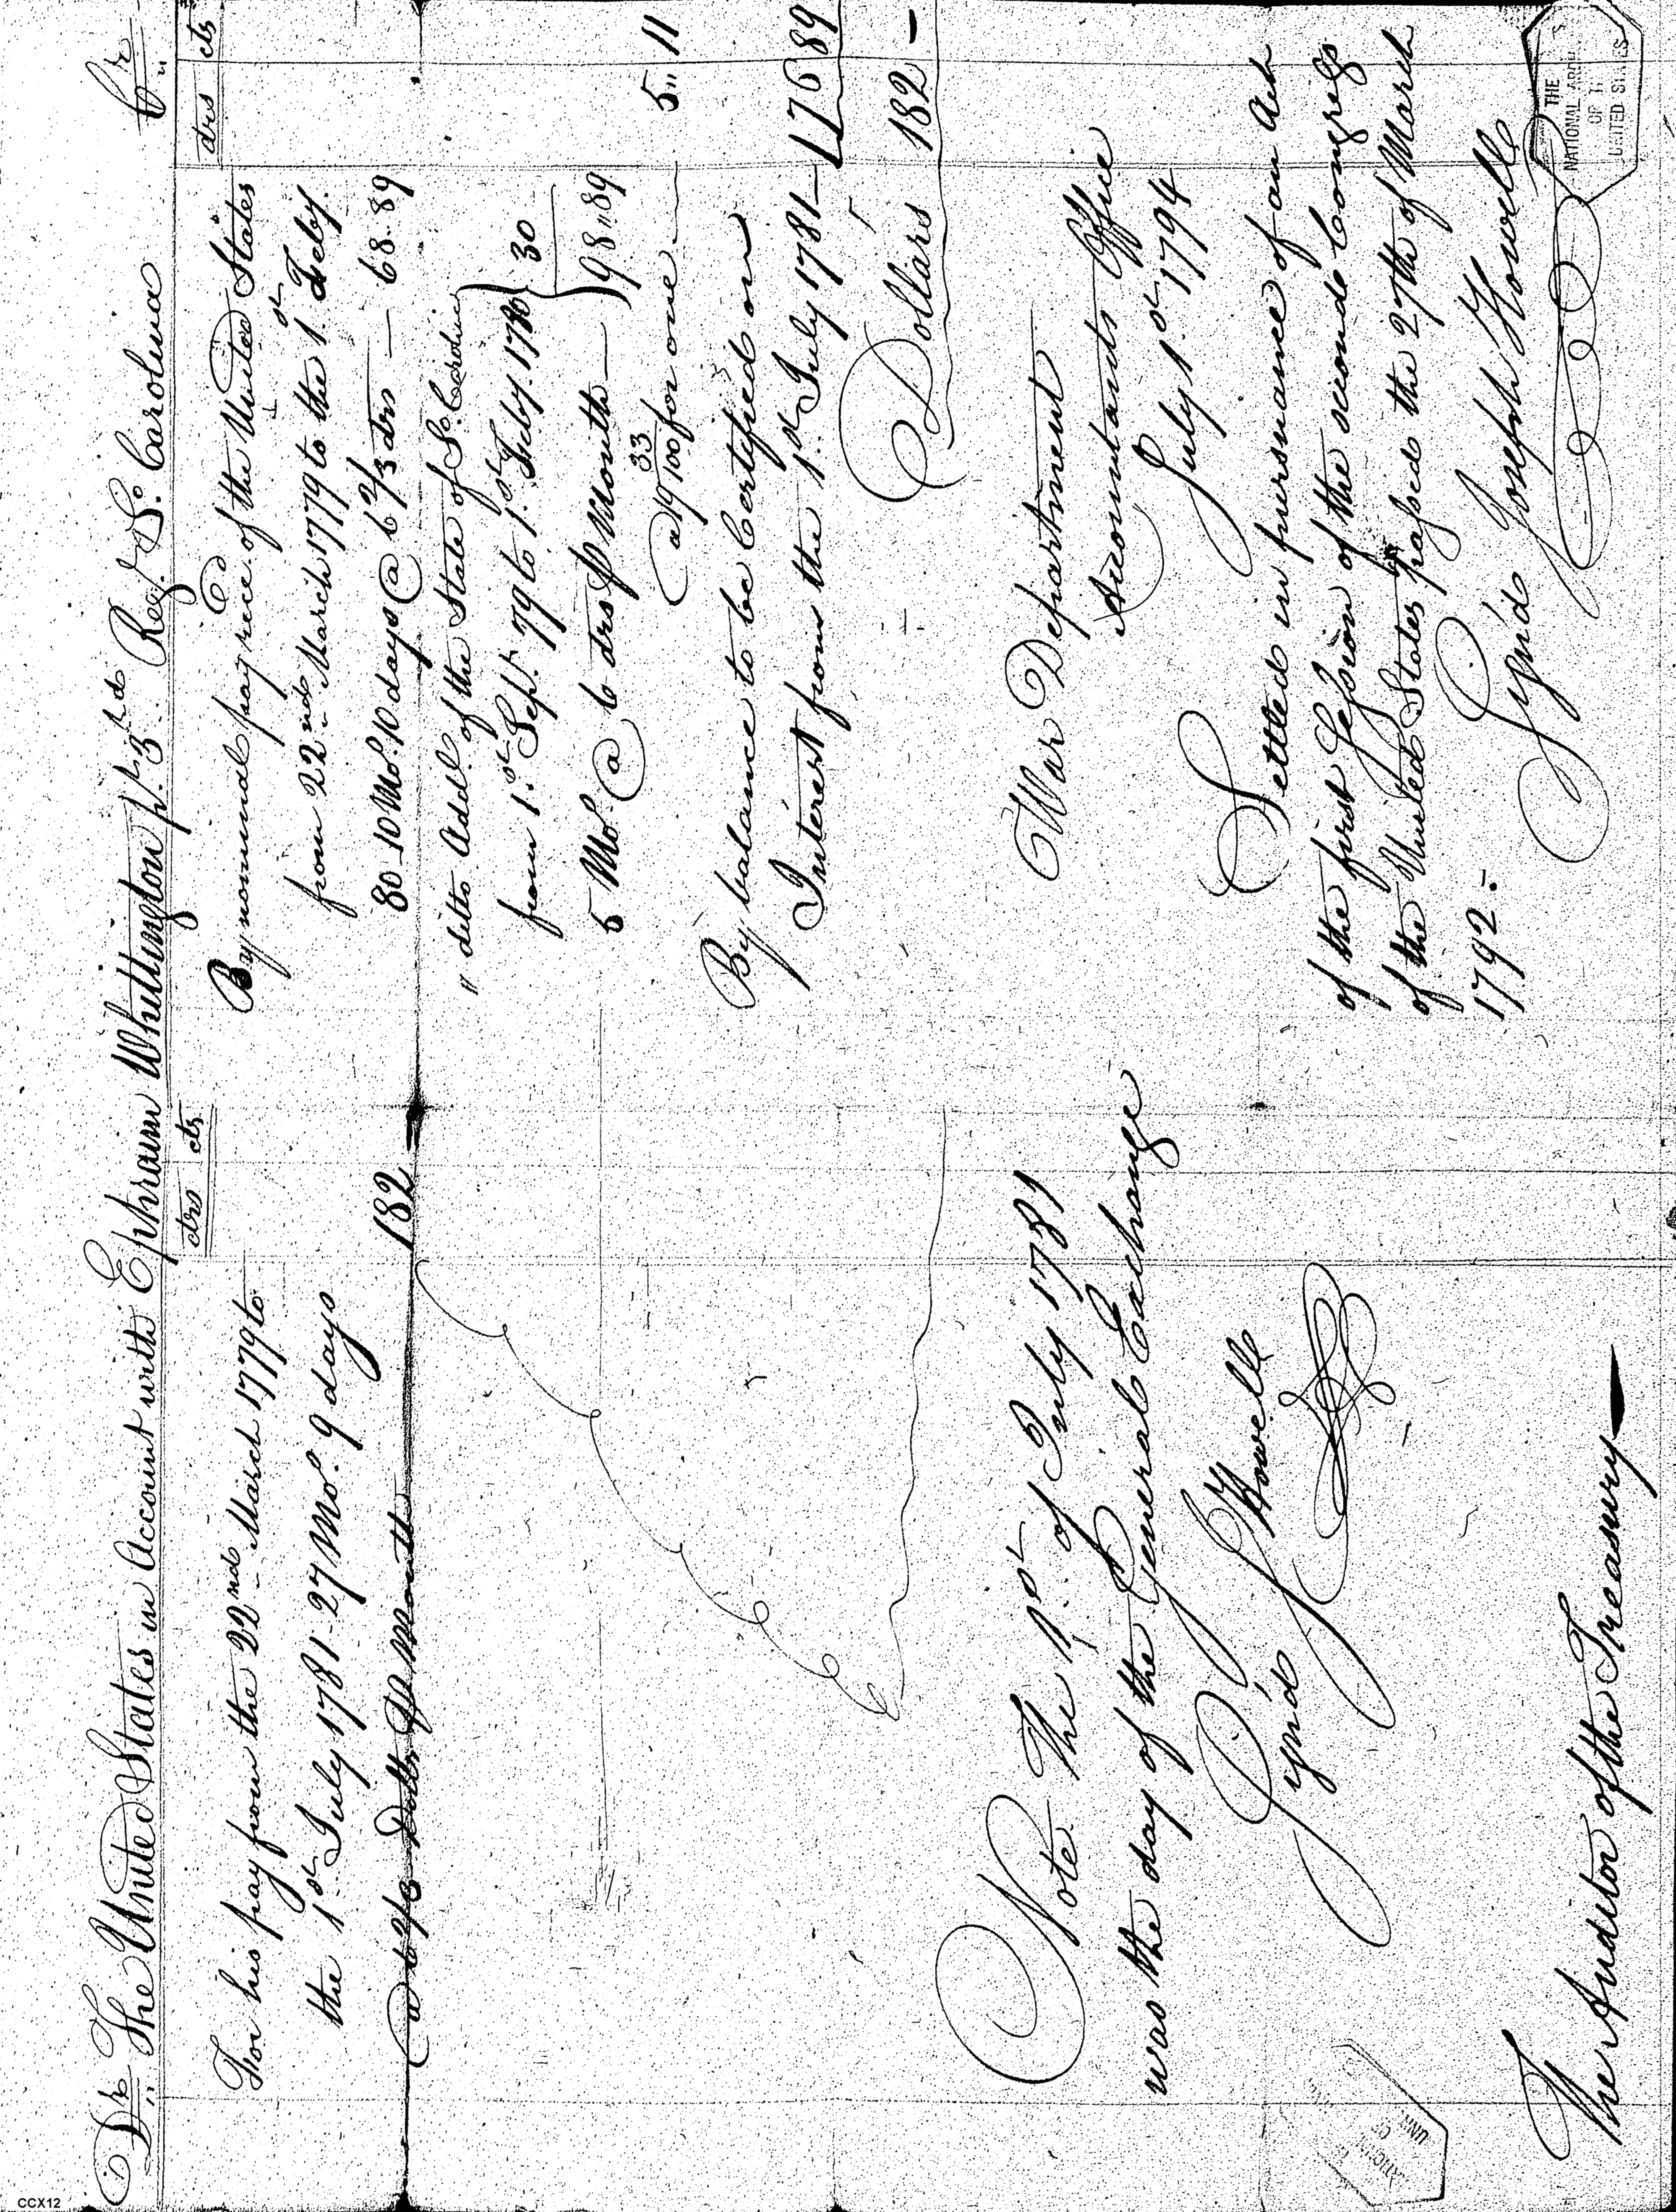 Dr. The United States in Account with Ephraim Whittington pt. 3rd Regt. So. Carolina Cr.
drs cts
For his pay from the 22nd March 1779 to
the 1st July 1781 - 27 Mo. 9 days
@ 6 2/3 Dolls. P Month 182
Note The 1st of July 1781
was the day of the General Exchange
Sign'd J Howell
The Auditor of the Treasury
drs cts
By nominal pay rece.d of the United States
from 22nd March 1779 to the 1st Feby.
80 - 10 Mo. 10 days @ 6 2/3 drs - 68.89
" ditto Addl. of the State of So. Carolina
from 1st Sept. 79 to 1st Feby. 1780 } 30
5 Mo. @ 6 drs P Month } 98 " 89
@ 19 33/100 for one 5 " 11
By balance to be Certified on
Interest from the 1st July 1781 - 176 89
Dollars 182 -
War Department
Accountants Office
July 1st 1794
Settled in pursuance of an Act
of the first Session of the second Congress
of the United States passed the 27th of March
1792.-
Sign'd Joseph Howell
THE
NATIONAL ARCH
OF T
UNITED STATES
CCX12